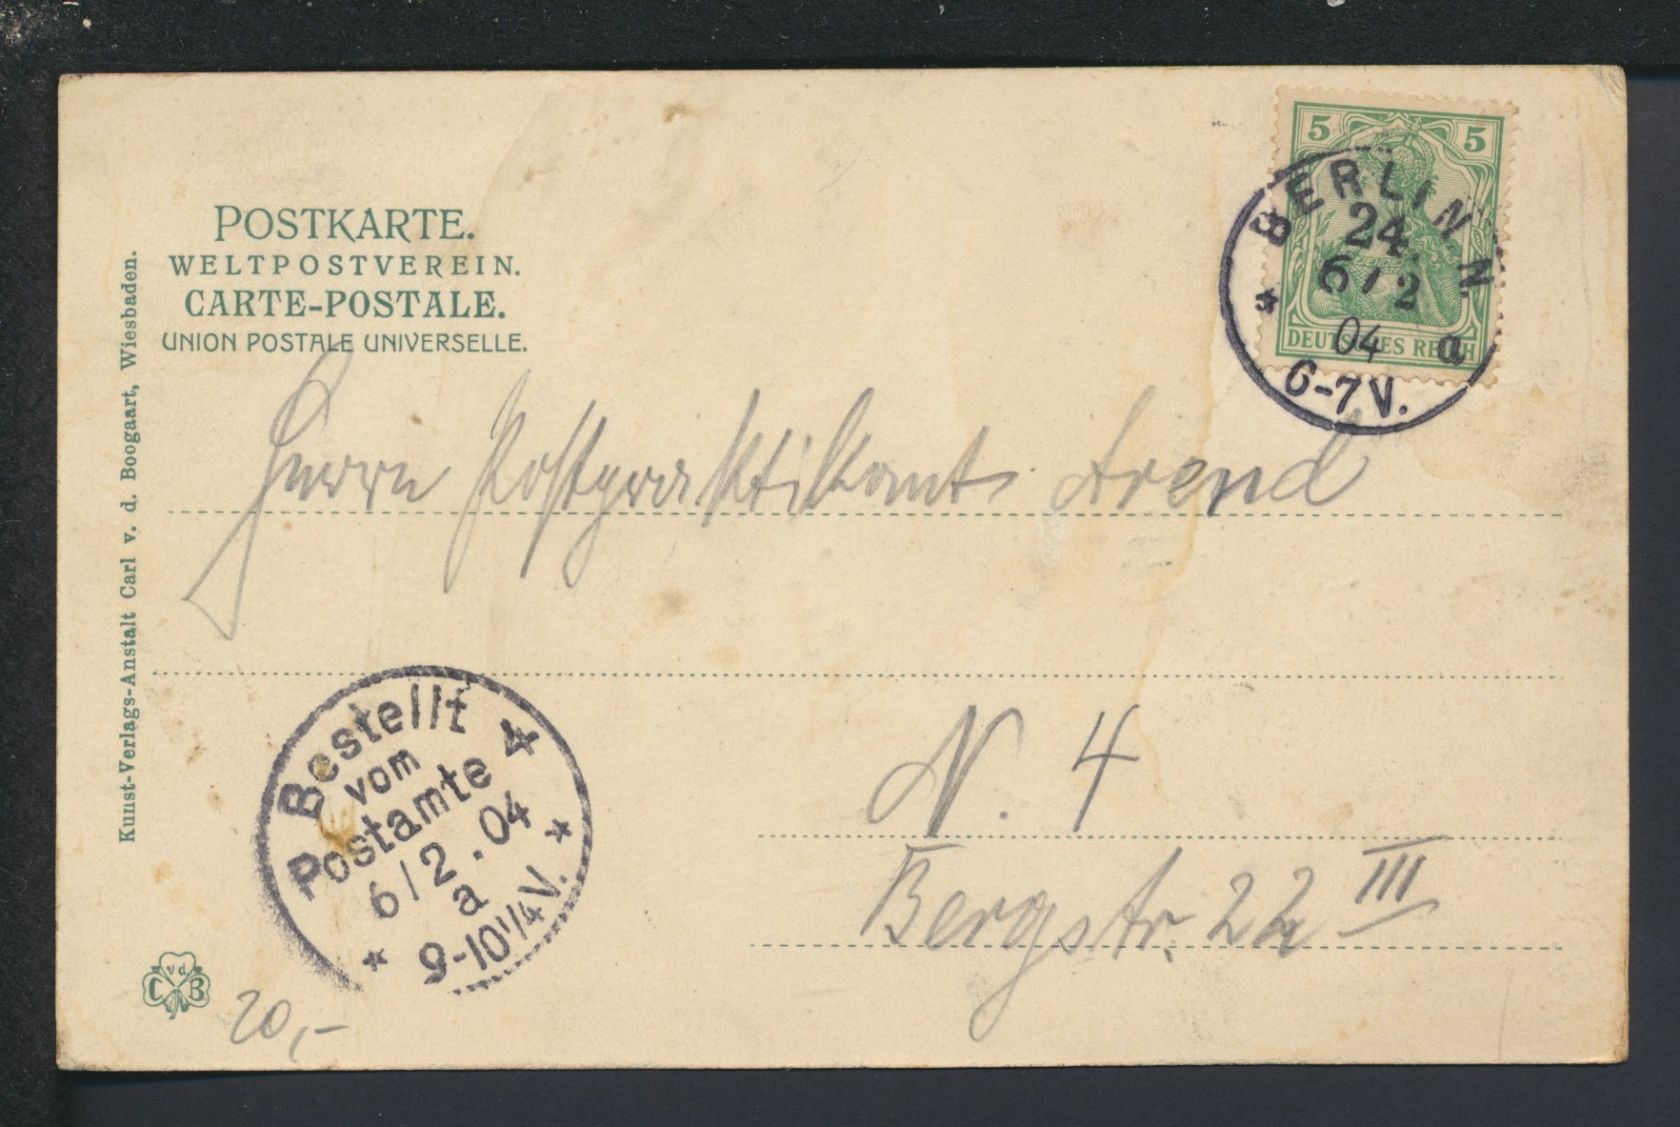 POSTKARTE.
WELTPOSTVEREIN.
CARTE-POSTALE.
UNION POSTALE UNIVERSELLE.
Kunst-Verlags-Anstalt Carl v. d. Boogaart, Wiesbaden.
5 5
DEUTSCHES REICH
BERLIN N.
24
6/2
04 a
6-7V.
Herrn Postpraktikant Arend
N. 4
Bergstr. 22 III
Bestellt
vom
Postamte 4
6/2.04
a
9-10¼V.
v d
C B
20,-